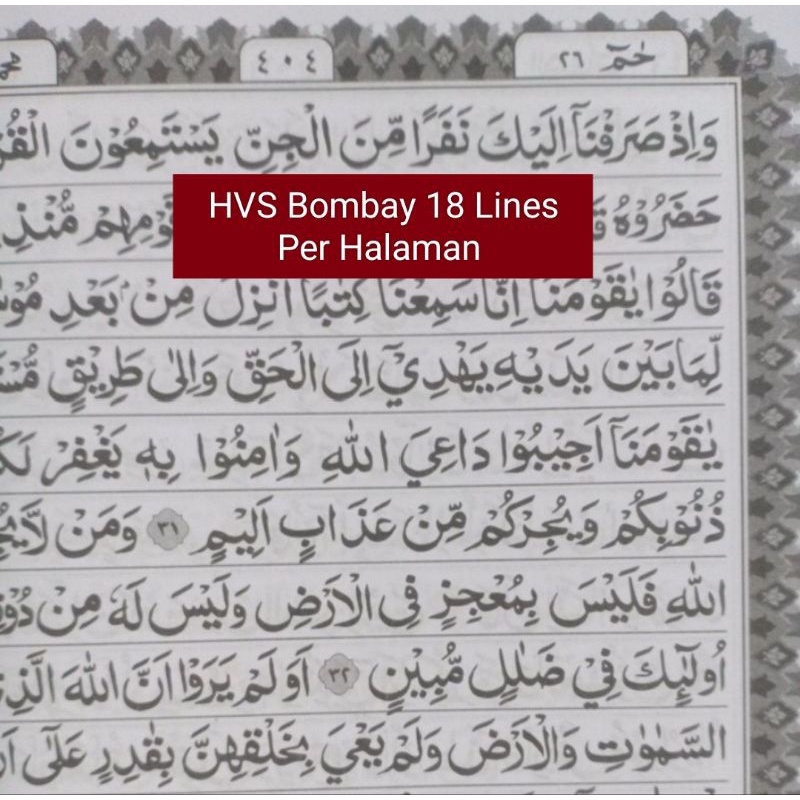 حٰمٓ ٢٦
٤٠٤
وَاِذْ صَرَفْنَآ اِلَيْكَ نَفَرًا مِّنَ الْجِنِّ يَسْتَمِعُوْنَ
HVS Bombay 18 Lines
Per Halaman
حَضَرُوْهُ
قَالُوْا يٰقَوْمَنَآ اِنَّا سَمِعْنَا كِتٰبًا اُنْزِلَ مِنْۢ بَعْدِ
لِّمَا بَيْنَ يَدَيْهِ يَهْدِيْٓ اِلَى الْحَقِّ وَاِلٰى طَرِيْقٍ
يٰقَوْمَنَآ اَجِيْبُوْا دَاعِيَ اللّٰهِ وَاٰمِنُوْا بِهٖ يَغْفِرْ
ذُنُوْبِكُمْ وَيُجِرْكُمْ مِّنْ عَذَابٍ اَلِيْمٍ ٣١ وَمَنْ لَّا
اللّٰهِ فَلَيْسَ بِمُعْجِزٍ فِى الْاَرْضِ وَلَيْسَ لَهٗ مِنْ
اُولٰۤىِٕكَ فِيْ ضَلٰلٍ مُّبِيْنٍ ٣٢ اَوَلَمْ يَرَوْا اَنَّ اللّٰهَ
السَّمٰوٰتِ وَالْاَرْضَ وَلَمْ يَعْيَ بِخَلْقِهِنَّ بِقٰدِرٍ عَلٰٓى